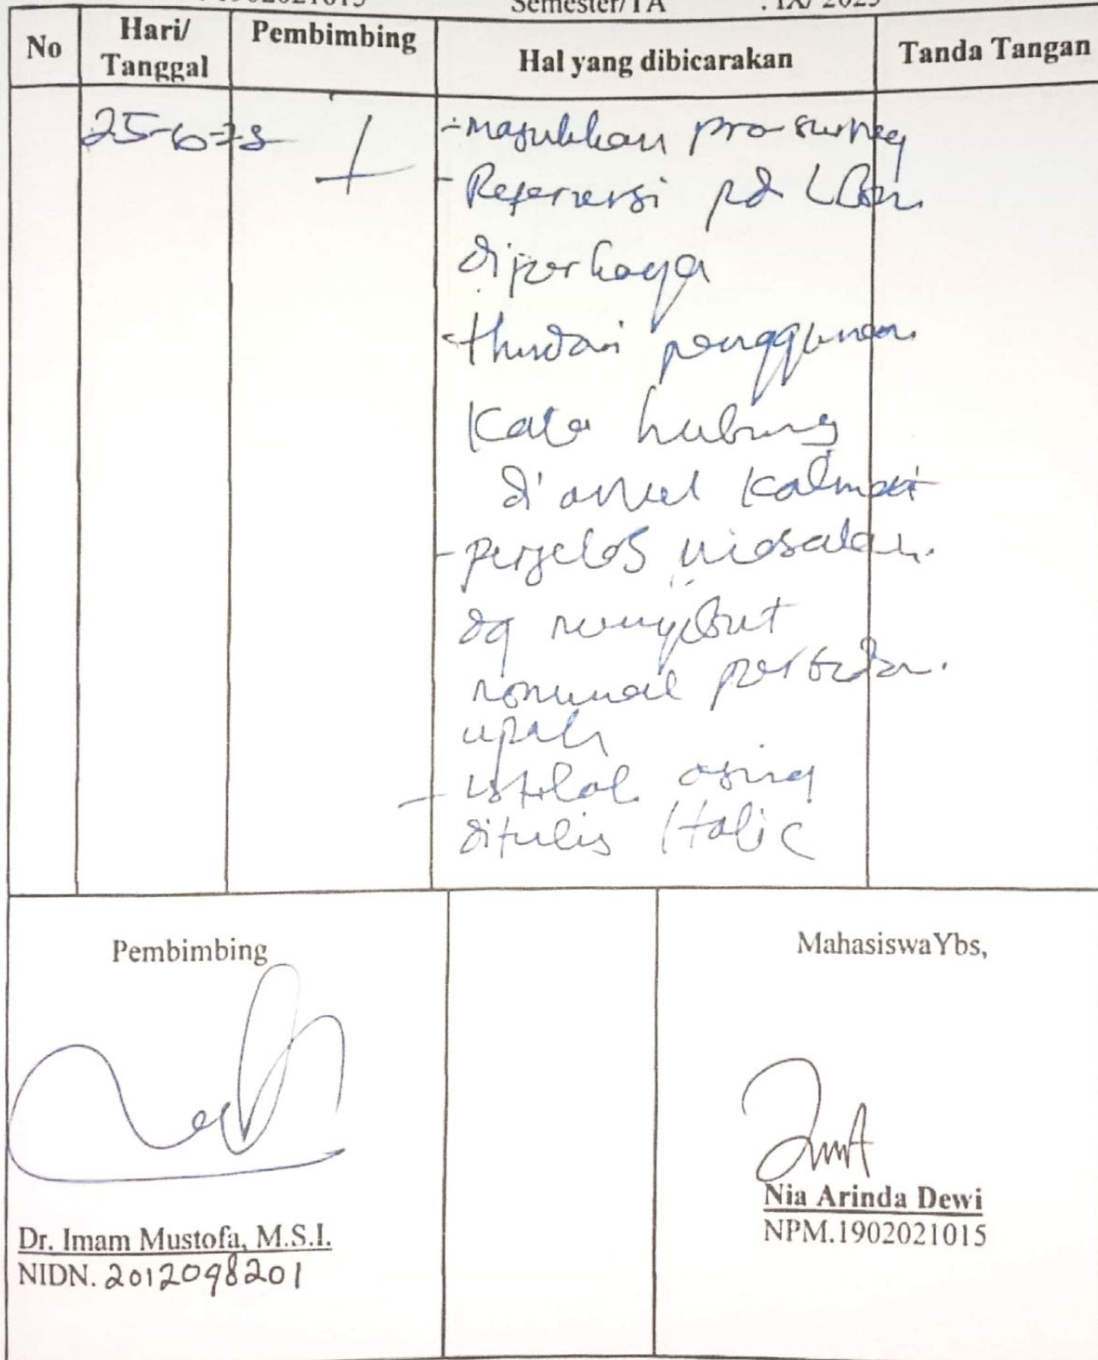 1902021015 Semester/TA : IX/ 2023
No Hari/ Tanggal Pembimbing Hal yang dibicarakan Tanda Tangan
25-6-23
- masukkan pra survey
- Referensi pd LBM
diperkaya
- Hindari penggunaan
kata hubung
di awal kalimat
- perjelas masalah
dg menyebut
nominal perbedaan
upah
- istilah asing
ditulis Italic
Pembimbing
Mahasiswa Ybs,
Dr. Imam Mustofa, M.S.I.
NIDN. 2012098201
Nia Arinda Dewi
NPM.1902021015